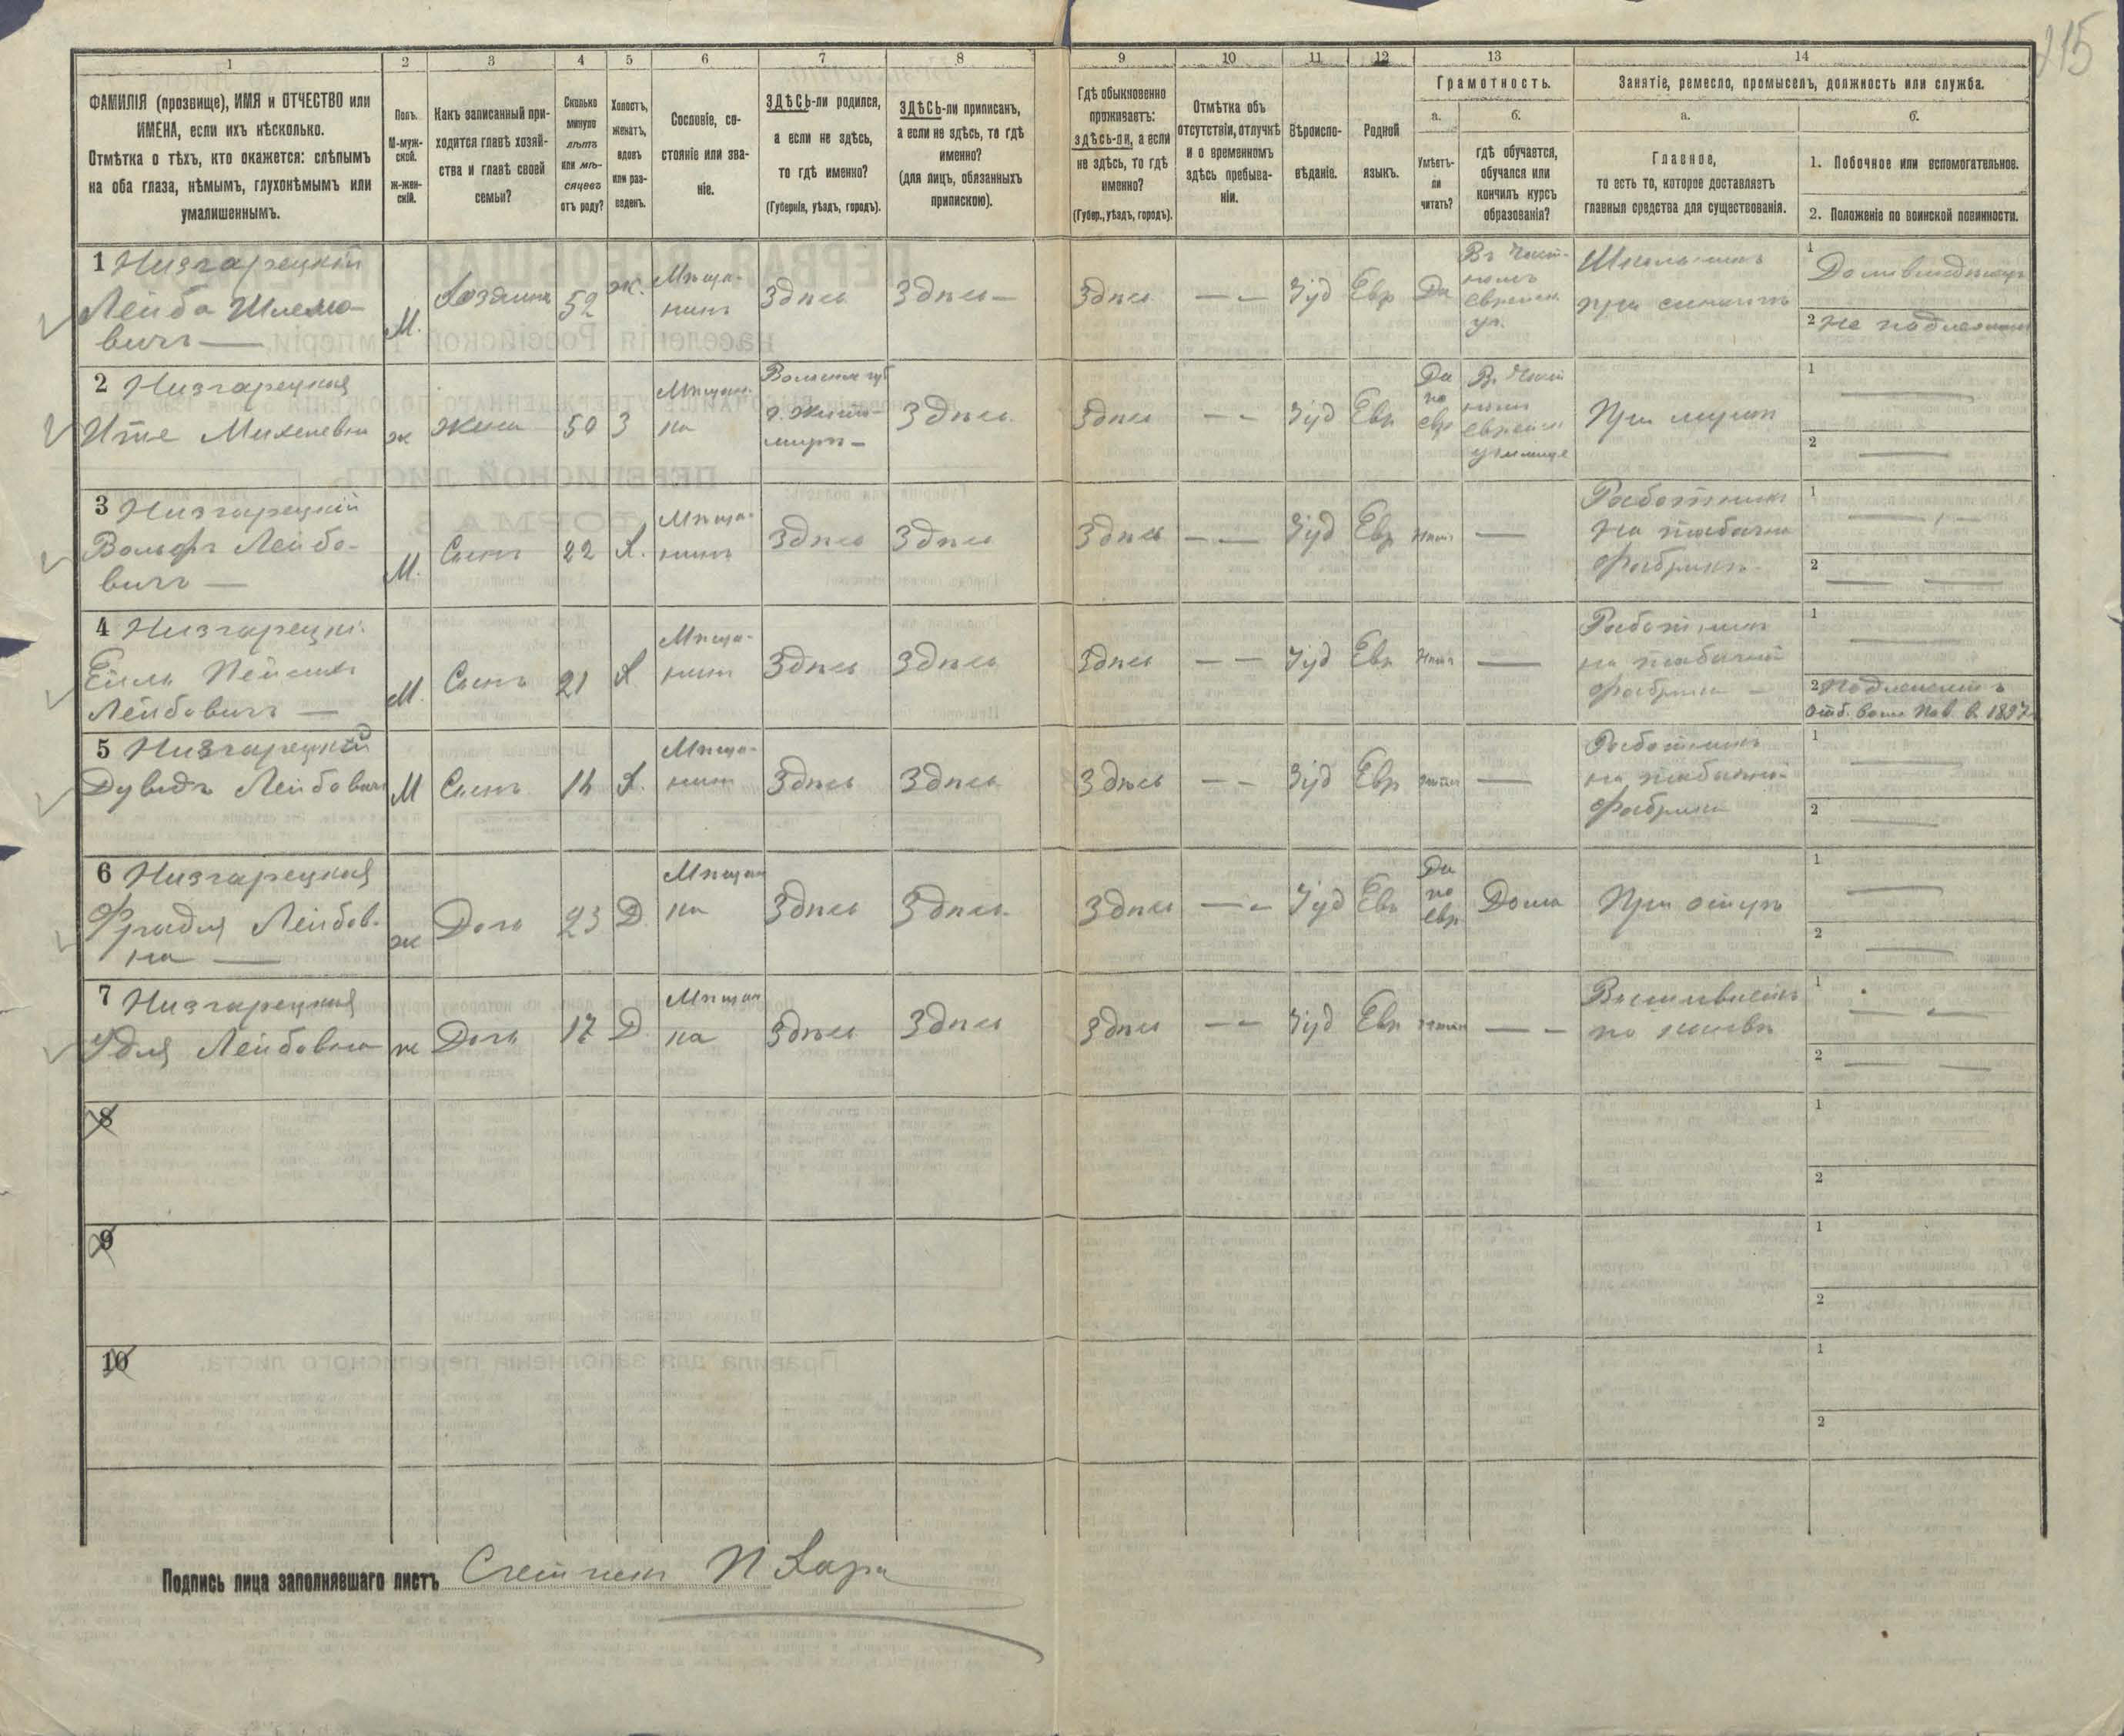 215
1 2 3 4 5 6 7 8 9 10 11 12 13 14
ФАМИЛІЯ (прозвище), ИМЯ и ОТЧЕСТВО или
ИМЕНА, если ихъ нѣсколько.
Отмѣтка о тѣхъ, кто окажется: слѣпымъ
на оба глаза, нѣмымъ, глухонѣмымъ или
умалишеннымъ.
Полъ.
М-муж-
ской.
ж-жен-
скій.
Какъ записанный при-
ходится главѣ хозяй-
ства и главѣ своей
семьи?
Сколько
минуло
лѣтъ
или мѣ-
сяцевъ
отъ роду?
Холостъ,
женатъ,
вдовъ
или раз-
веденъ.
Сословіе, со-
стояніе или зва-
ніе.
ЗДѢСЬ-ли родился,
а если не здѣсь,
то гдѣ именно?
(Губернія, уѣздъ, городъ).
ЗДѢСЬ-ли приписанъ,
а если не здѣсь, то гдѣ
именно?
(для лицъ, обязанныхъ
припискою).
Гдѣ обыкновенно
проживаетъ:
здѣсь-ли, а если
не здѣсь, то гдѣ
именно?
(Губер., уѣздъ, городъ).
Отмѣтка объ
отсутствіи, отлучкѣ
и о временномъ
здѣсь пребыва-
ніи.
Вѣроиспо-
вѣданіе.
Родной
языкъ.
Грамотность.
а.
Умѣетъ-
ли
читать?
б.
гдѣ обучается,
обучался или
кончилъ курсъ
образованія?
Занятіе, ремесло, промыселъ, должность или служба.
а.
Главное,
то есть то, которое доставляетъ
главныя средства для существованія.
б.
1. Побочное или вспомогательное.
2. Положеніе по воинской повинности.
1 Низгарецкій
Лейба Шлемо-
вичъ —
М.
Хозяинъ
52
ж.
Мѣща-
нинъ
Здѣсь
Здѣсь —
Здѣсь
— —
Іуд
Евр
Да
Въ Част-
номъ
еврейск.
уч.
при синагогѣ
1 Домовладѣлецъ
2 Не подлежитъ
2 Низгарецкая
Итe Михелевна
ж
жена
50
З
Мѣщан-
ка
Волынск губ
г. Жито-
миръ —
Здѣсь
Здѣсь
— —
Іуд
Евр
Да
по
евр
В. Част
номъ
еврейск
училище
При мужѣ
1 —
2 —
3 Низгарецкій
Вольфъ Лейбо-
вичъ —
М.
Сынъ
22
Х.
Мѣща-
нинъ
Здѣсь
Здѣсь
Здѣсь
— —
Іуд
Евр
Нѣтъ
—
Работникъ
на табачн
фабрикѣ
1 — —
2 — —
4 Низгарецкі
Лейбовичъ —
М.
Сынъ
21
Х
Мѣща-
нинъ
Здѣсь
Здѣсь
Здѣсь
— —
Іуд
Евр
Нѣтъ
—
Работникъ
на табачной
фабрикѣ —
1 —
2 Подлежитъ
отб. воин пов. в. 1897
5 Низгарецкій
Дувидъ Лейбовичъ
М
Сынъ
Х.
Мѣща-
нин
Здѣсь
Здѣсь
Здѣсь
— —
Іуд
Евр
нѣтъ
—
Работникъ
на табачной
фабрикѣ
1 —
2 —
6 Низгарецкая
Фрадля Лейбов-
на —
ж
Дочь
23
Д.
Мѣщан
ка
Здѣсь
Здѣсь
Здѣсь
— —
Іуд
Евр
Да
по
евр
Дома
При отцѣ
1 —
2 —
7 Низгарецкая
Удля Лейбовна
ж
Дочь
17
Д.
Мѣщан
ка
Здѣсь
Здѣсь
Здѣсь
— —
Іуд
Евр
нѣтъ
— —
Вышиваетъ
по канвѣ
1 — —
2 — —
8
1
2
9
1
2
10
1
2
Подпись лица заполнявшаго листъ Счетчикъ